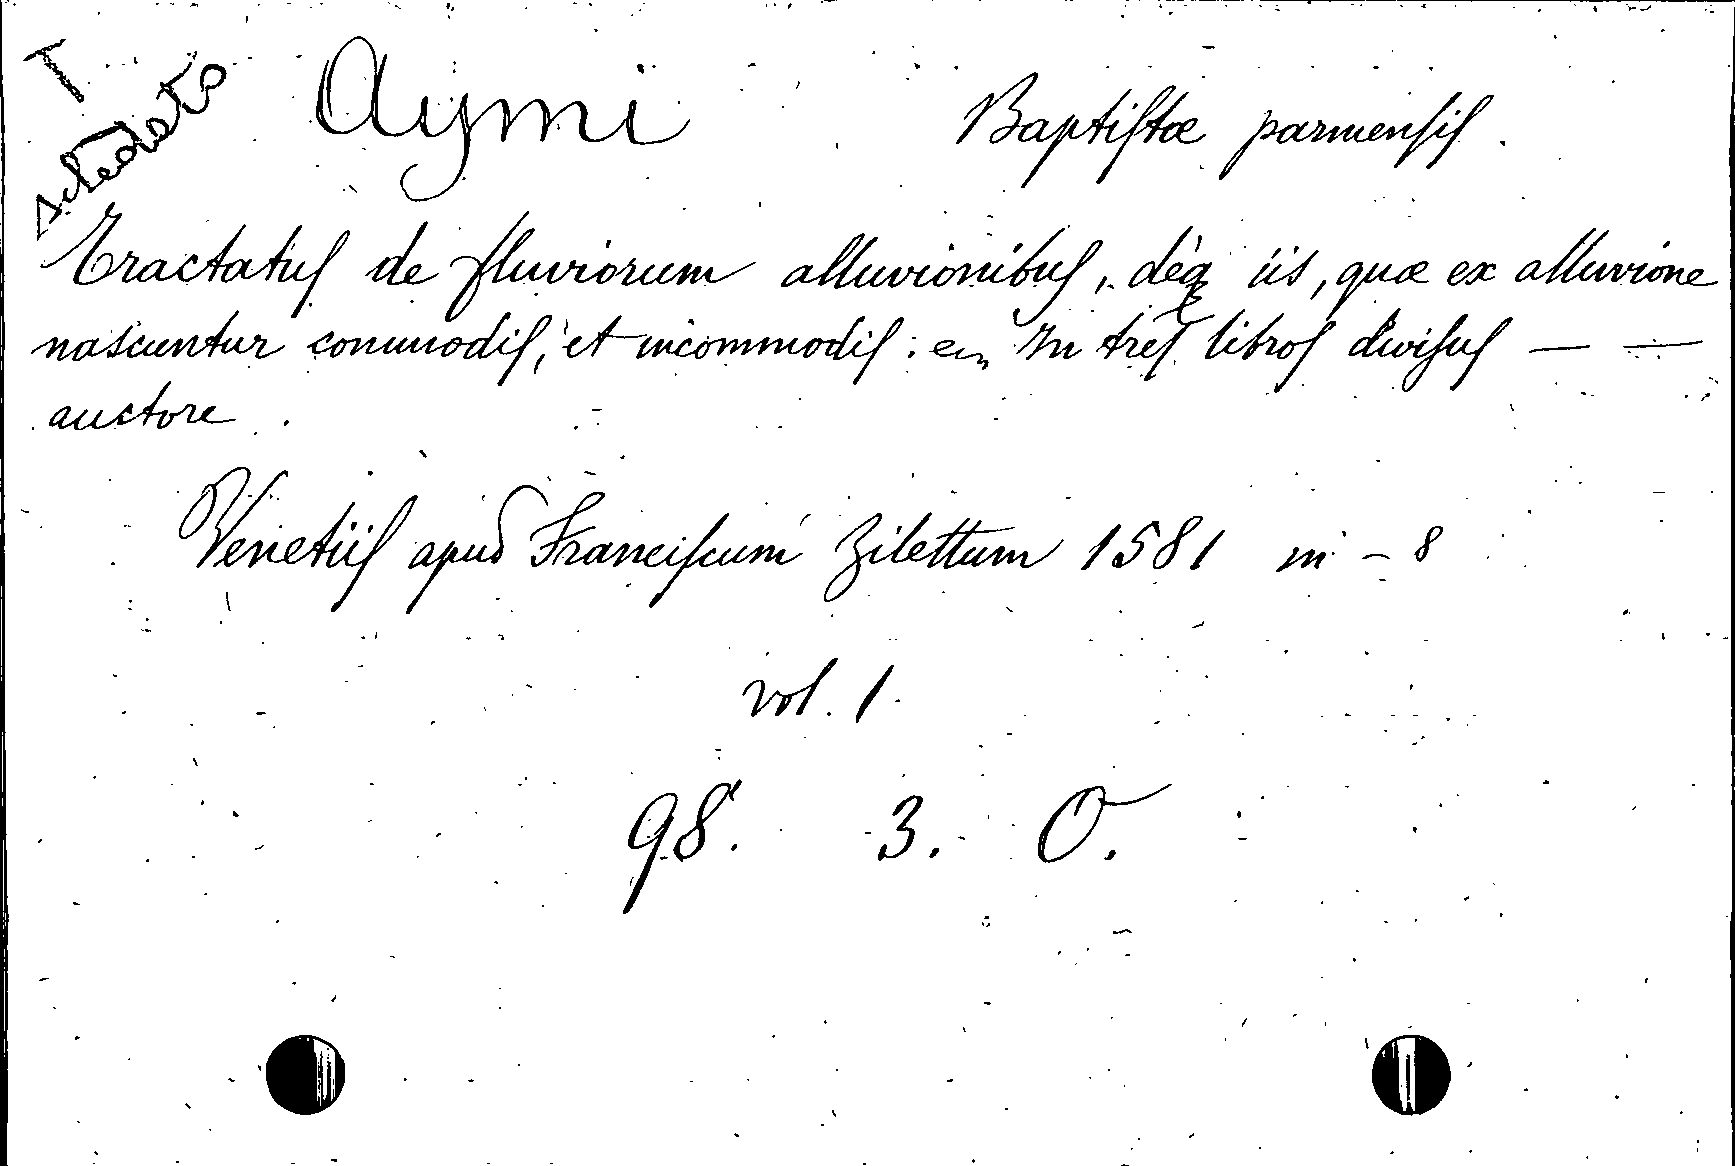 T
schedato
Aymi Baptistæ parmensis.
Tractatus de fluviorum alluvionibus, deq iis, quæ ex alluvione
nascuntur commodis, et incommodis. In tres libros divisus — —
auctore.
Venetiis apud Franciscum Zilettum 1581 in - 8
vol. 1
98. 3. O.